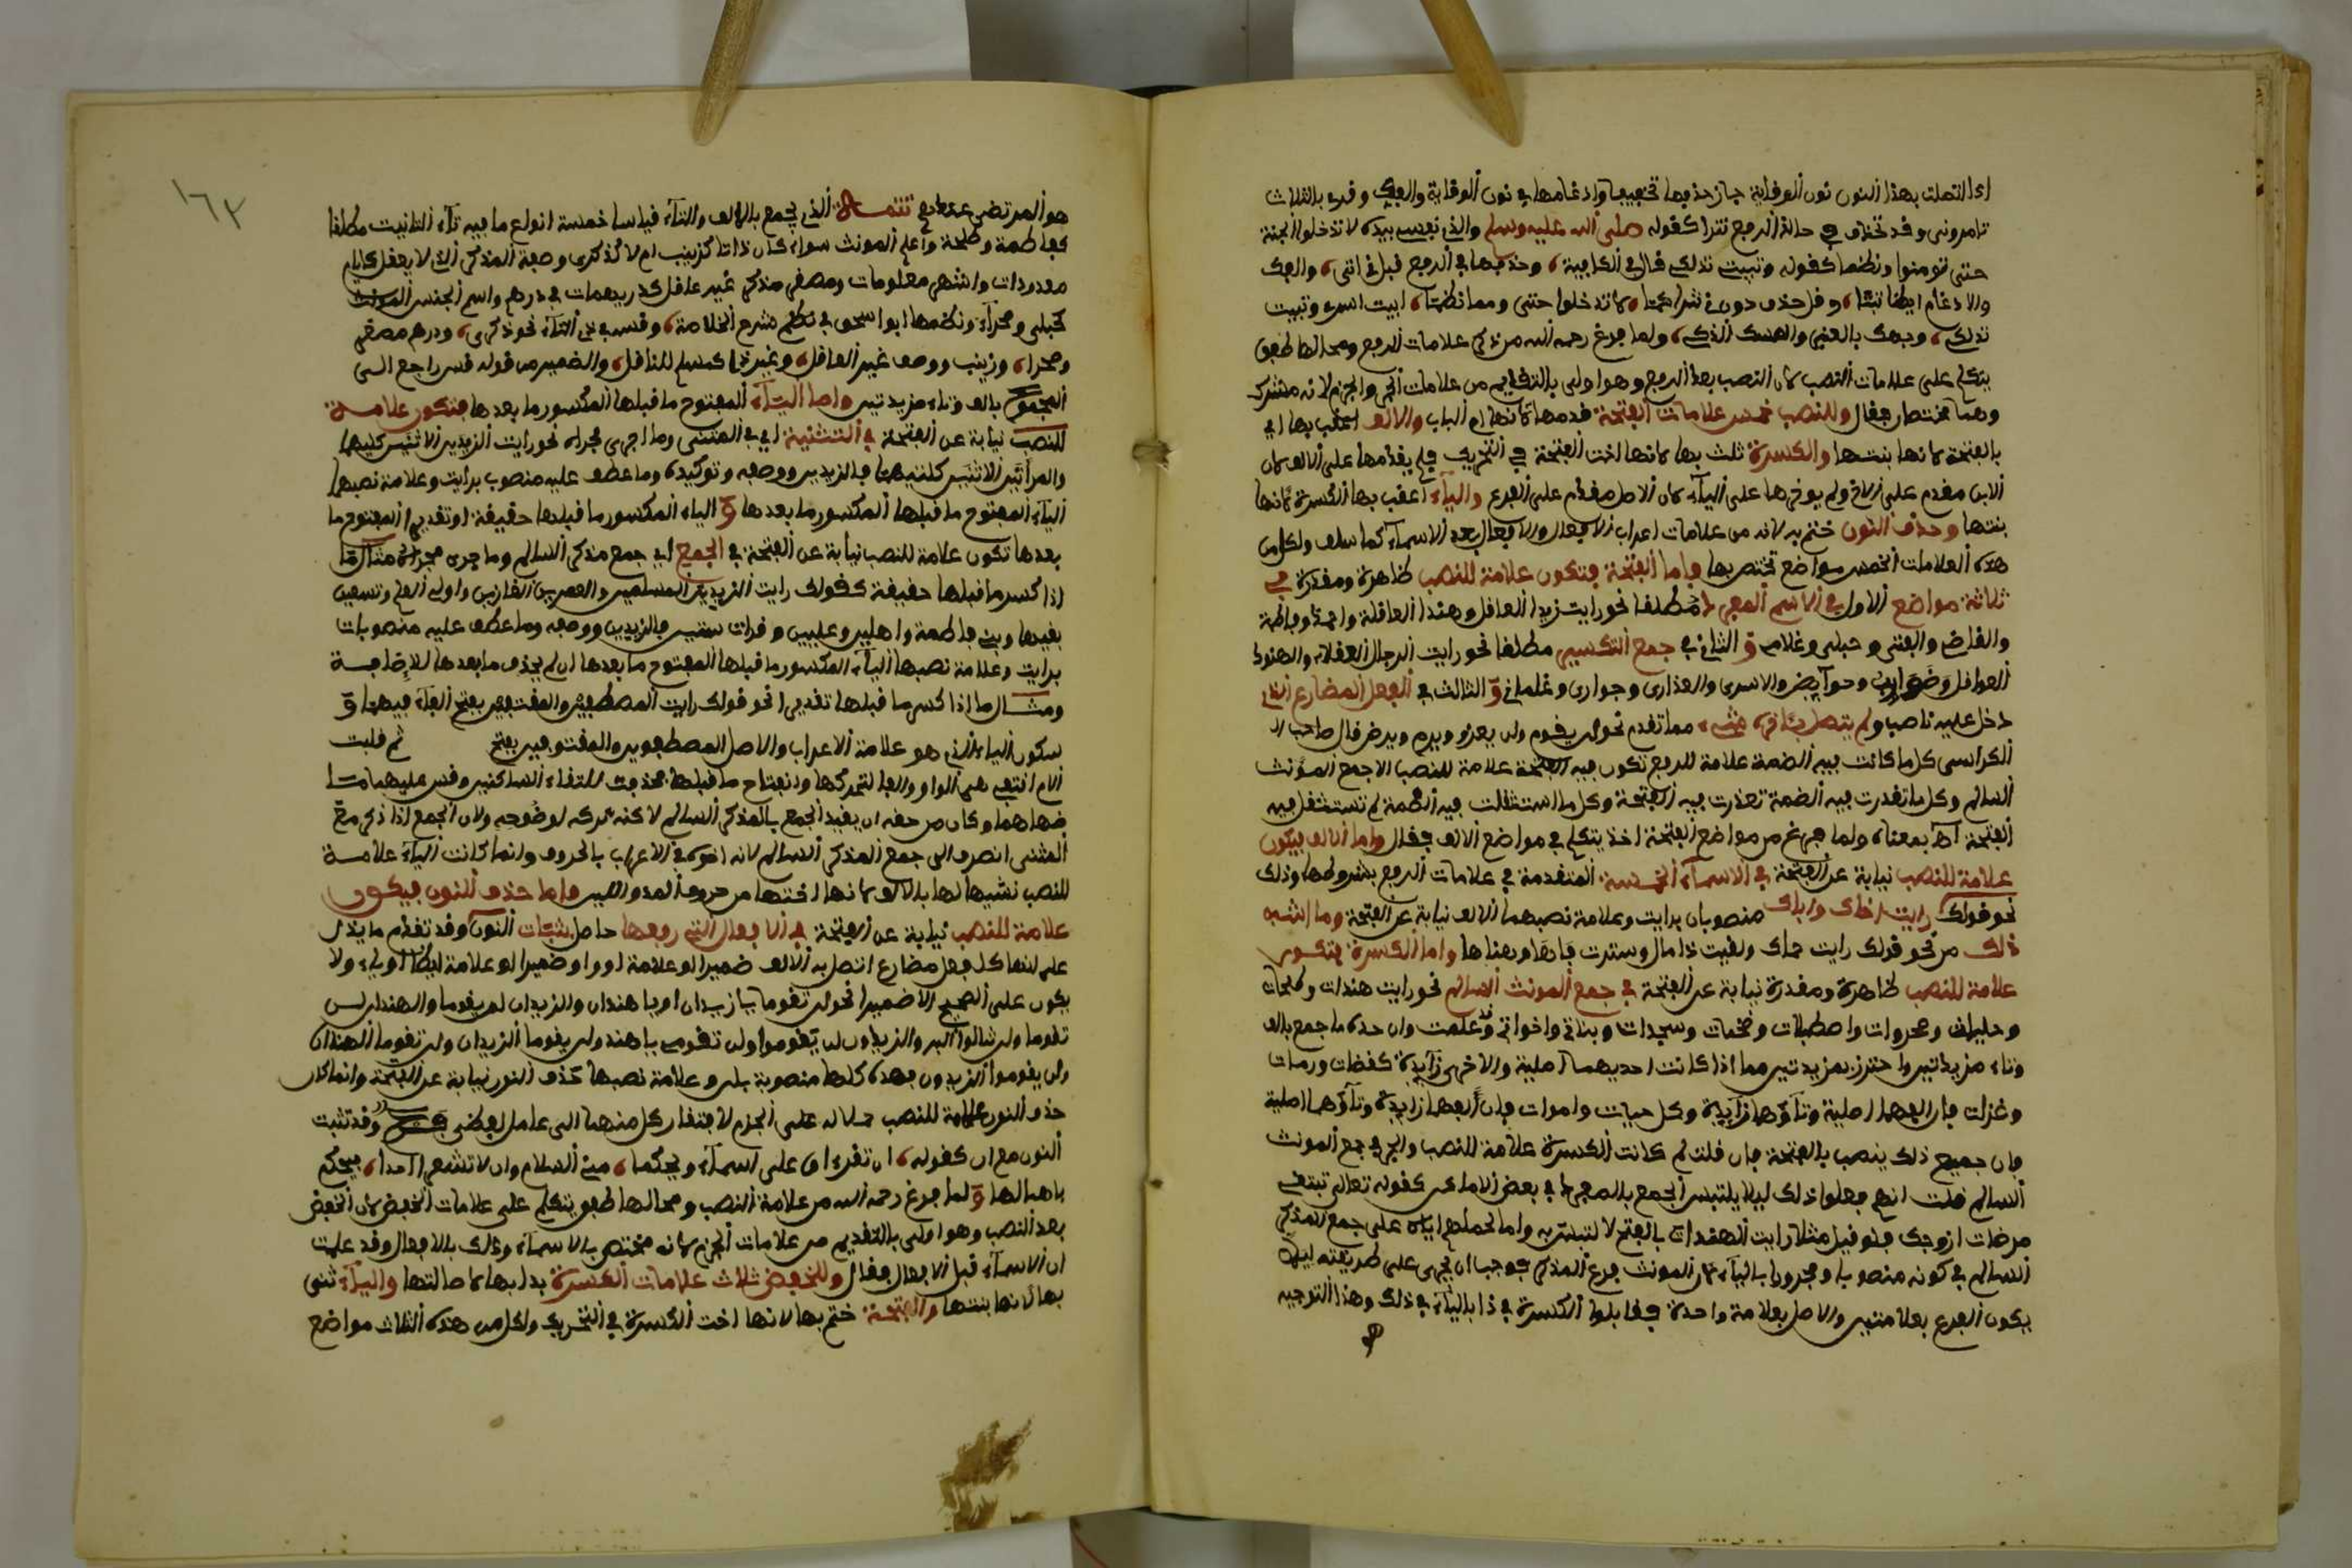 اذا اتصلت بهذا النون نون الوقاية جاز حذفها تخفيفا وادغامها في نون الوقاية والفك وقرئ بالثلاث
تامروني وقد تحذف في حالة الرفع نثرا كقوله صلى الله عليه وسلم والذي نفسي بيده لا تدخلوا الجنة
حتى تومنوا ونظما كقوله وتبيت تدلكي قال في الكافية، وحذفها في الرفع قبل في اتى، والفك
والادغام ايضا ثبتا، وقل حذف دون في نثرا
تدلكي، وجهك بالعنبر والمسك الذكي، ولما فرغ رحمه الله من ذكر علامات الرفع ومحالها طفق
يتكلم على علامات النصب لان النصب بعد الرفع وهو اولى بالتقديم من علامات الجر والجزم لانه مشترك
وهما مختصان فقال وللنصب خمس علامات الفتحة قدمها لانها ام الباب والالف اعقب بها اي
بالفتحة لانها بنتها والكسرة ثلث بها لانها اخت الفتحة في التحريك فلم يقدمها على الالف لان
الابن مقدم على الاخ ولم يوخرها على الياء لان الاصل مقدم على الفرع والياء اعقب بها الكسرة لانها
بنتها وحذف النون ختم به لانه من علامات اعراب الافعال والافعال بعد الاسماء كما سلف ولكل من
هذه العلامات الخمس مواضع تختص بها فاما الفتحة فتكون علامة للنصب ظاهرة ومقدرة في
ثلاثة مواضع الاول في الاسم المفرد مطلقا نحو رايت زيدا العاقل وهندا العاقلة واحمد وفاطمة
والقاضي والفتى وحبلى وغلامي والثاني في جمع التكسير مطلقا نحو رايت الرجال العقلاء والهنود
العواقل وضوارب وحوايض والاسرى والعذارى وجواري وغلماني والثالث في الفعل المضارع اذا
دخل عليه ناصب ولم يتصل باخره شيء مما تقدم نحو لن يقوم ولن يغزو ويرمي ويرضى قال صاحب
الكراسي كل ما كانت فيه الضمة علامة للرفع تكون فيه الفتحة علامة للنصب الا جمع المؤنث
السالم وكل ما تقدرت فيه الضمة تعذرت فيه الفتحة وكل ما استثقلت فيه الضمة لم تستثقل فيه
الفتحة اه بمعناه ولما فرغ من مواضع الفتحة اخذ يتكلم في مواضع الالف فقال واما الالف فيكون
علامة للنصب نيابة عن الفتحة في الاسماء الخمسة المتقدمة في علامات الرفع بشروطها وذلك
نحو قولك رايت اخاك واباك منصوبان برايت وعلامة نصبهما الالف نيابة عن الفتحة وما اشبه
ذلك من نحو قولك رايت حماك ولقيت ذا مال وسترت فاها وهناها واما الكسرة فتكون
علامة للنصب ظاهرة ومقدرة نيابة عن الفتحة في جمع المونث السالم نحو رايت هندات وطلحات
وحبليات وصحروات واصطبلات وسجدات وبناتي واخواتي وقد علمت وان حده ما جمع بالف
وتاء مزيدتين واحترز بمزيدتين مما اذا كانت احديهما اصلية والاخرى زايدة كقضات ورمات
وغزات فان الفها اصلية وتاؤها زايدة وكل حبيات واموات فان الفها زايدة وتاؤها اصلية
فان جميع ذلك ينصب بالفتحة فان قلت لم كانت الكسرة علامة للنصب والجر في جمع المونث
السالم قلت انهم فعلوا ذلك ليلا يلتبس الجمع بالمفرد في بعض الاماكن كقوله تعالى تبتغي
مرضات ازوجك فلو قيل مثلا رايت الهندات بالفتح لالتبس به واما لحملهم اياه على جمع المذكر
السالم في كونه منصوبا ومجرورا بالياء لان المونث فرع المذكر فوجب ان يجرى على طريقته ليلا
يكون الفرع بعلامتين والاصل بعلامة واحدة فقابلوا الكسرة في ذا بالياء في ذلك وهذا التوجيه
١٦٢
هو المرتضى عندهم تتمة الذي يجمع بالالف والتاء قياسا خمسة انواع ما فيه تاء التانيث مطلقا
كفاطمة وطلحة واعلم المونث سواء كان ذا تا كزينب ام لا كذكرى وصفة المذكر الذي لا يعقل كايام
معدودات واشهر معلومات ومصغر مذكر غير عاقل كدريهمات في درهم واسم الجنس المونث
كحبلى وصحراء ونظمها ابو اسحق في نظم شرح الخلاصة، وقسه في ذي التاء نحو ذكرى، ودرهم مصغر
وصحراء، وزينب ووصف غير العاقل، وغير ذا كمسلم للناقل، والضمير من قوله قس راجع الى
المجموع بالف وتاء مزيدتين واما الياء المفتوح ما قبلها المكسور ما بعدها فتكون علامة
للنصب نيابة عن الفتحة في التثنية اي في المثنى وما اجرى مجراه نحو رايت الزيدين الاثنين كليهما
والمراتين الاثنتين كلتيهما فالزيدين ووصفه وتوكيده وما عطف عليه منصوب برايت وعلامة نصبها
الياء المفتوح ما قبلها المكسور ما بعدها والياء المكسور ما قبلها حقيقة او تقديرا المفتوح ما
بعدها تكون علامة للنصب نيابة عن الفتحة في الجمع اي جمع مذكر السالم وما جرى مجراه مثال ما
اذا كسر ما قبلها حقيقة كقولك رايت الزيدين المسلمين والعمرين القارين واولي العلم وتسعين
فقيها وبني فاطمة واهلين وعليين وقرات سنين فالزيدين ووصفه وما عطف عليه منصوبات
برايت وعلامة نصبها الياء المكسور ما قبلها المفتوح ما بعدها ان لم يحذف ما بعدها للاضافة
ومثال ما اذا كسر ما قبلها تقديرا نحو قولك رايت المصطفين والمفتوحين بفتح الفاء فيهما و
سكون الياء الذي هو علامة الاعراب والاصل المصطفوين والمفتوحين بفتح ثم قلبت
اللام التي هي الواو والفا لتحركها وانفتاح ما قبلها فحذفت لالتقاء الساكنين وقس عليهما ما
ضهاهما وكان من حقه ان يقيد الجمع بالمذكر السالم لاكنه تركه لوضوحه ولان الجمع اذا ذكر مع
المثنى انصرف الى جمع المذكر السالم لانه اخوه في الاعراب بالحروف وانما كانت الياء علامة
للنصب تشبيها لها بالالف لانها اختها من حروف المد واللين واما حذف النون فيكون
علامة للنصب نيابة عن الفتحة في الافعال التي رفعها حاصل بثبات النون وقد تقدم ما يدل
على انها كل فعل مضارع اتصل به الالف ضميرا او علامة او واو ضميرا او علامة اوياء ولا
يكون على الصحيح الا ضميرا نحو لن تقوما يا زيدان او يا هندان والزيدان لن يقوما والهندان لن
تقوما ولن تنالوا البر والزيدون لن يقوموا ولن تقومي يا هند ولن يقوما الزيدان ولن تقوما الهندان
ولن يقوموا الزيدون فهذه كلها منصوبة بلن وعلامة نصبها حذف النون نيابة عن الفتحة وانما كان
حذف النون علامة للنصب حملا له على الجزم لافتقار كل منهما الى عامل لفظي وقد تثبت
النون مع ان كقوله، ان تقرءان على اسماء ويحكما، مني السلام وان لا تشعرا احدا، فيحكم
باهمالها ولما فرغ رحمه الله من علامة النصب ومحالها طفق يتكلم على علامات الخفض لان الخفض
بعد النصب وهو اولى بالتقديم من علامات الجزم لانه مختص بالاسماء وذلك بالافعال وقد علمت
ان الاسماء قبل الافعال فقال وللخفض ثلاث علامات الكسرة بدا بها لاصالتها والياء ثنى
بها لانها بنتها والفتحة ختم بها لانها اخت الكسرة في التحريك ولكل من هذه الثلاث مواضع